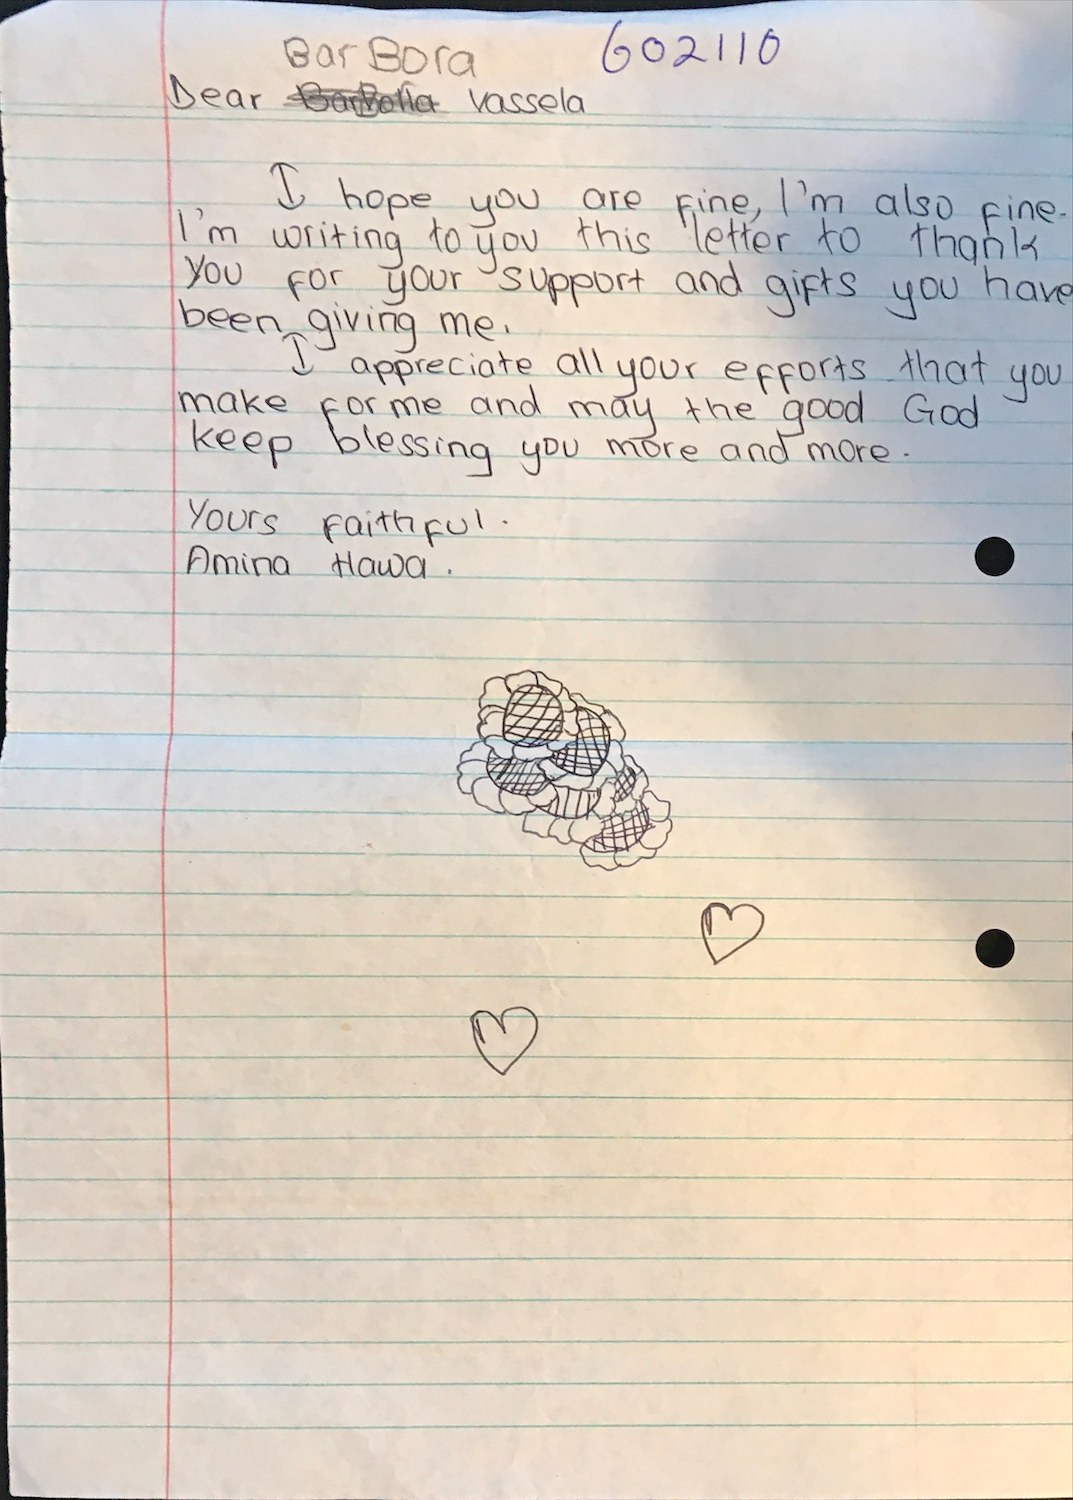 BarBora 602110
Dear Vassela
I hope you are fine, I'm also fine.
I'm writing to you this letter to thank
you for your support and gifts you have
been giving me.
I appreciate all your efforts that you
make for me and may the good God
keep blessing you more and more.
Yours faithful.
Amina Hawa.